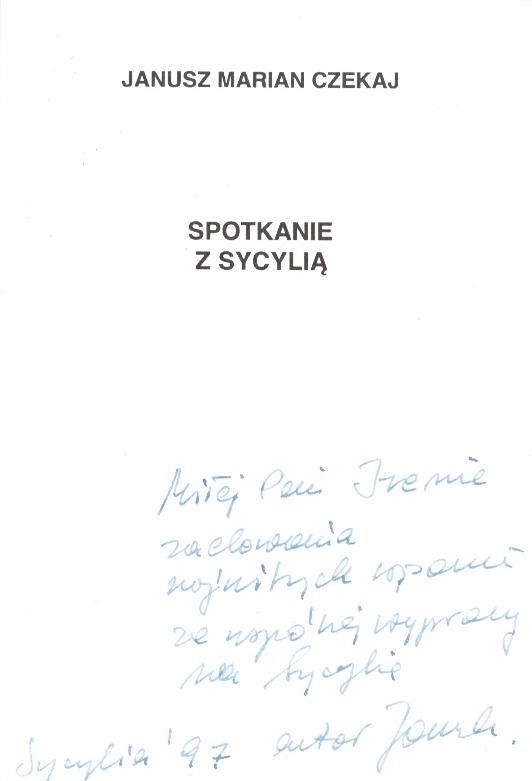 JANUSZ MARIAN CZEKAJ
SPOTKANIE
Z SYCYLIĄ
Miłej Pani Irenie
zachowania
najmilszych wspomn
ze wspólnej wyprawy
na Sycylię
Sycylia '97 autor Janusz.